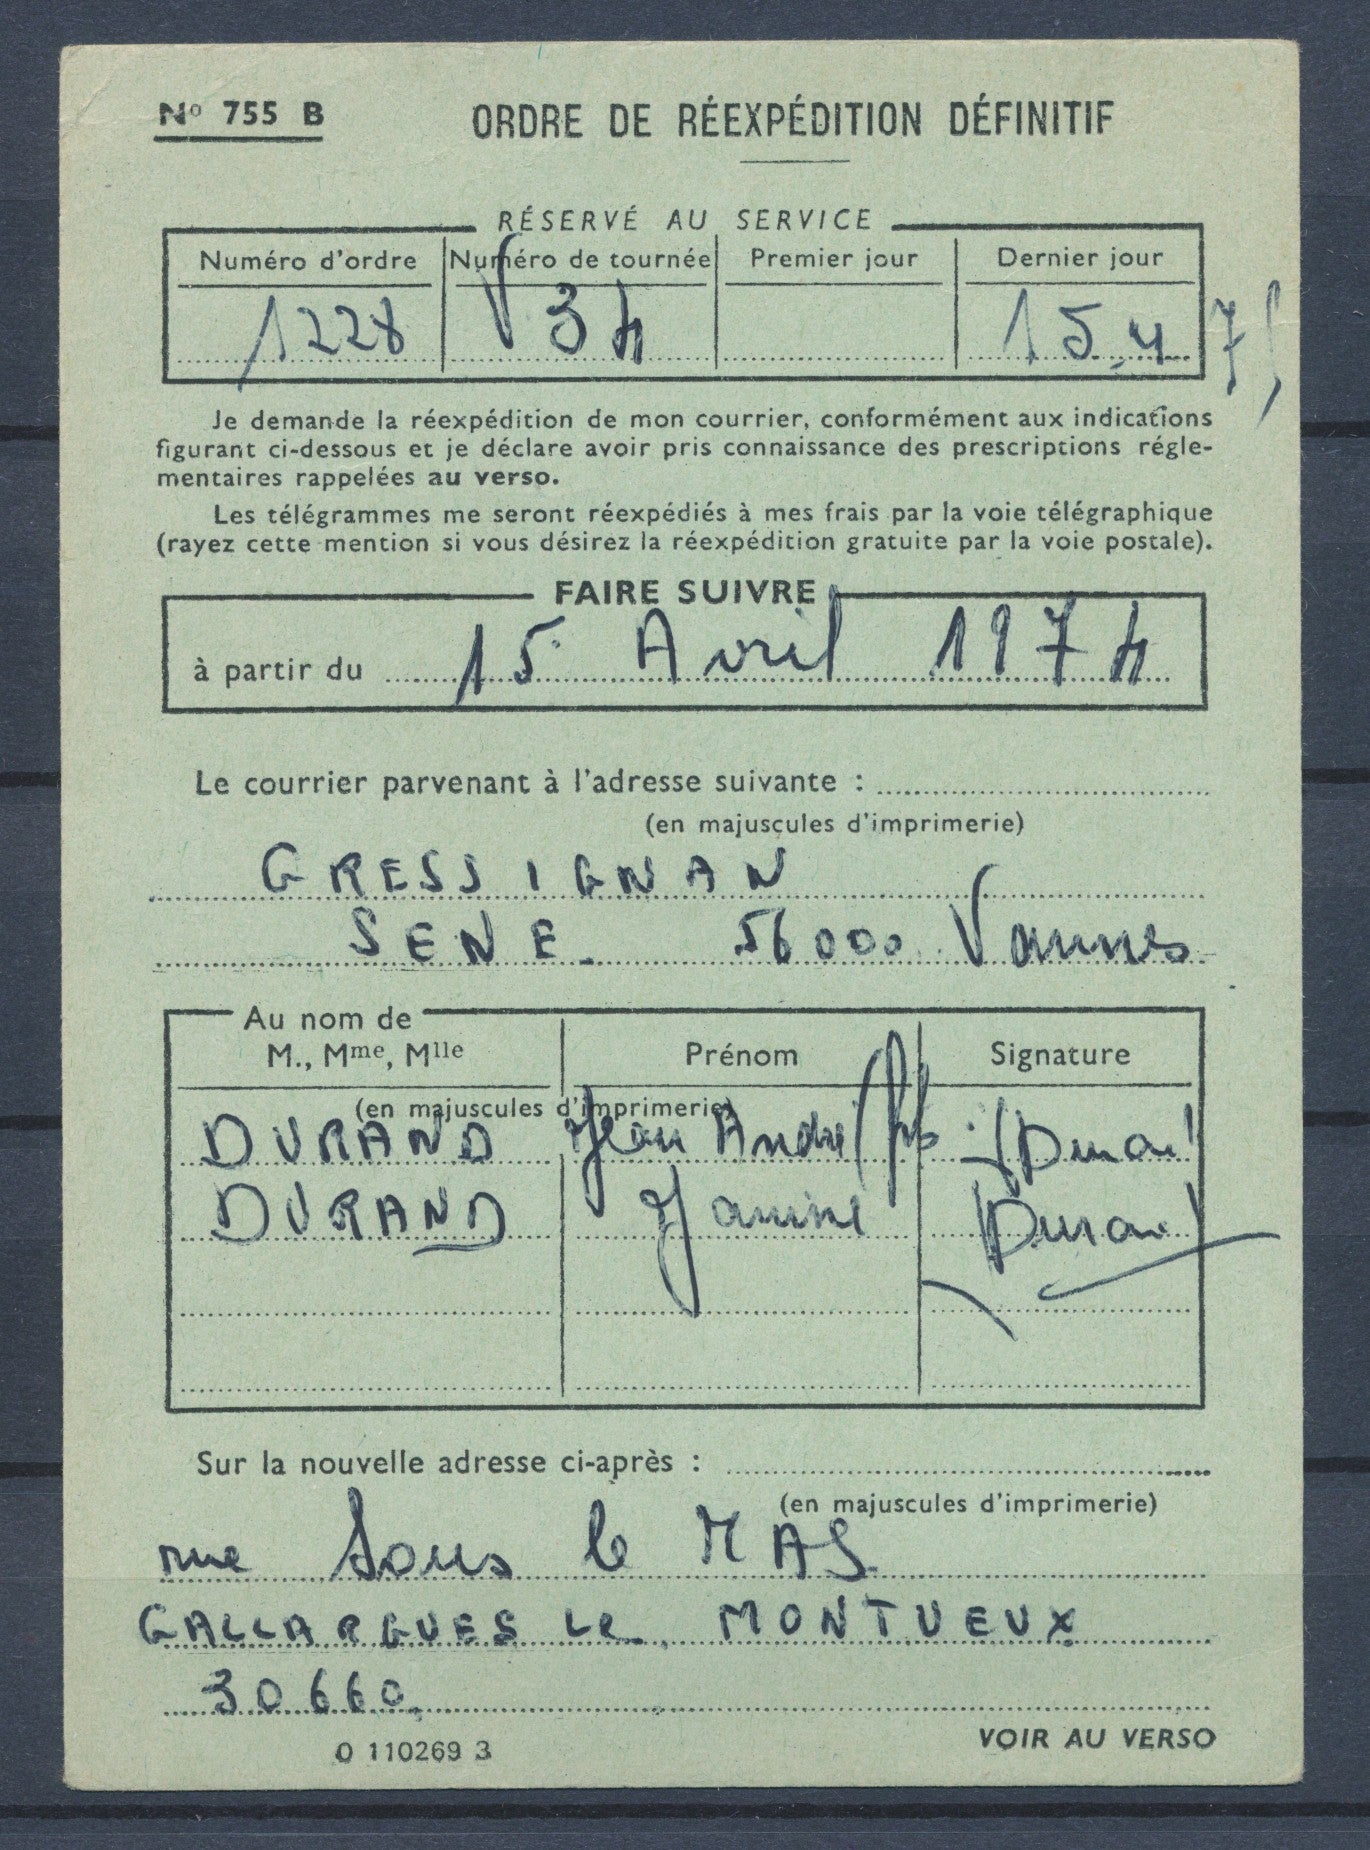 No 755 B
ORDRE DE RÉEXPÉDITION DÉFINITIF
RÉSERVÉ AU SERVICE
Numéro d'ordre Numéro de tournée Premier jour Dernier jour
1228 V34 15.4 75
Je demande la réexpédition de mon courrier, conformément aux indications
figurant ci-dessous et je déclare avoir pris connaissance des prescriptions régle-
mentaires rappelées au verso.
Les télégrammes me seront réexpédiés à mes frais par la voie télégraphique
(rayez cette mention si vous désirez la réexpédition gratuite par la voie postale).
FAIRE SUIVRE
à partir du 15 Avril 1974
Le courrier parvenant à l'adresse suivante :
(en majuscules d'imprimerie)
GRESSIGNAN
SENE. 56000 Vannes
Au nom de
M., Mme, Mlle Prénom Signature
(en majuscules d'imprimerie)
DURAND Jean André
DURAND Janine Durand
Sur la nouvelle adresse ci-après :
(en majuscules d'imprimerie)
rue Sous le MAS
GALLARGUES Le MONTUEUX
30660.
O 110269 3
VOIR AU VERSO